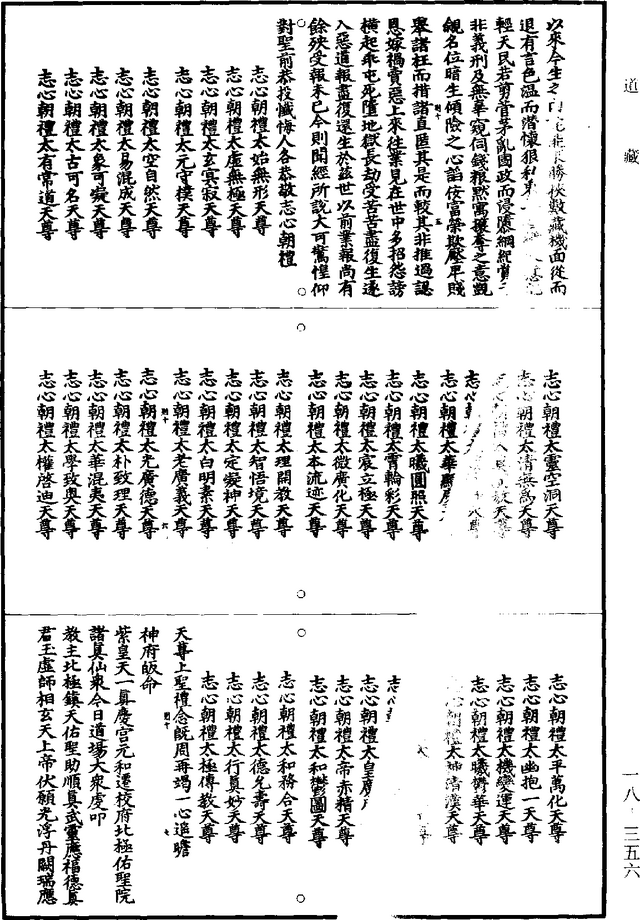 道藏
以來今生之
退有言色溫而潛懷狠利
輕天民若剪昔茅亂國政而侵隳綱紀賞
非義刑及無辜窺伺錢粮默寓攘奪之意覬
覦名位暗生傾險之心謟佞富榮欺壓卑賤
舉諸枉而措諸直匿其是而較其非推過認
恩嫁禍賣惡上來往業見在世中多招怨謗
橫起乖屯死墮地獄長劫受苦苦盡復生遂
入惡道報盡復還生於茲世以前業報尚有
餘殃受報未已今則聞經所說大可驚惶仰
對聖前恭投懺悔人各恭敬志心朝禮
志心朝禮太始無形天尊
志心朝禮太虛無極天尊
志心朝禮太玄冥寂天尊
志心朝禮太元守樸天尊
志心朝禮太空自然天尊
志心朝禮太易混成天尊
志心朝禮太象可凝天尊
志心朝禮太古可名天尊
志心朝禮太有常道天尊
志心朝禮太靈空洞天尊
志心朝禮太清無為天尊
天尊
志心
志心朝禮太華
志心朝禮太曦圓照天尊
志心朝禮太霄輪彩天尊
志心朝禮太宸立極天尊
志心朝禮太微廣化天尊
志心朝禮太本流迹天尊
志心朝禮太理開教天尊
志心朝禮太智悟境天尊
志心朝禮太定凝神天尊
志心朝禮太白明素天尊
志心朝禮太老廣義天尊
志心朝禮太光廣德天尊
志心朝禮太朴致理天尊
志心朝禮太華混夷天尊
志心朝禮太學致奧天尊
志心朝禮太權啓迪天尊
志心朝禮太平萬化天尊
志心朝禮太幽抱一天尊
志心朝禮太機變運天尊
志心朝禮太曦鬱華天尊
朝禮太神清漢天尊
志心
志心朝禮太皇
志心朝禮太帝赤精天尊
志心朝禮太和鬱圖天尊
志心朝禮太和務合天尊
志心朝禮太德允壽天尊
志心朝禮太行真妙天尊
志心朝禮太極傳教天尊
天尊上聖禮念既周再竭一心追瞻
神府皈命
紫皇天一真慶宮元和遷校府北極佑聖院
諸真仙衆今日道場大衆虔叩
教主北極鎮天佑聖助順真武靈應福德真
君玉虛師相玄天上帝伏願光浮丹闕瑞應
一八·三五六